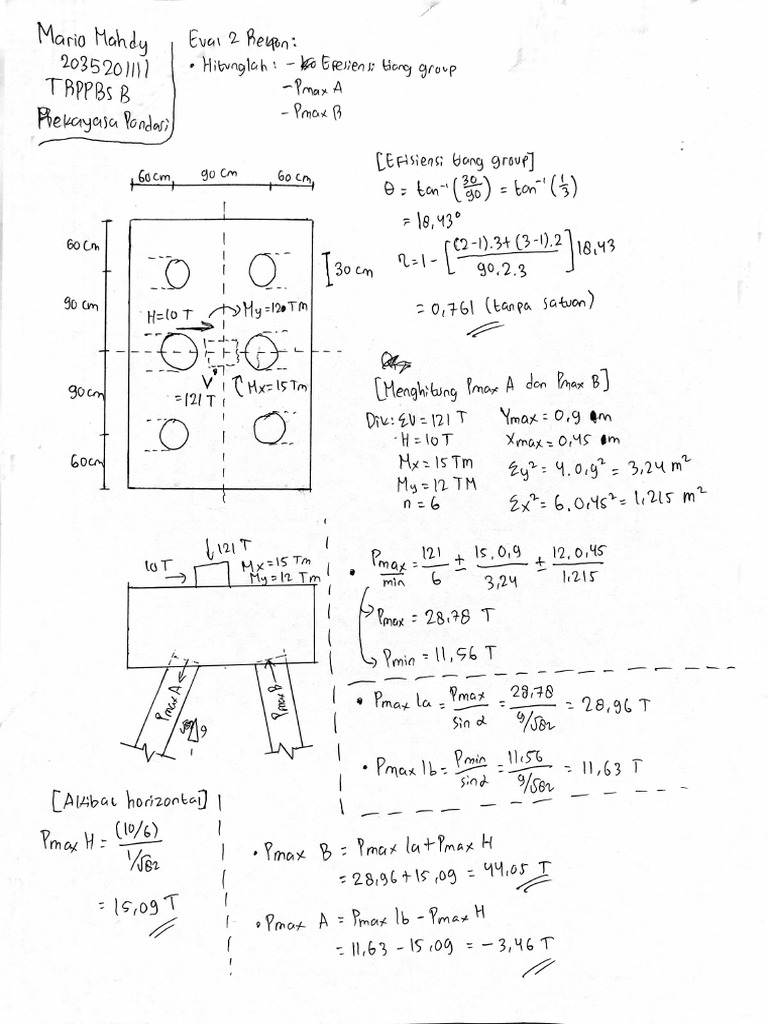 Mario Mahdy
2035201111
TRPPBS B
Rekayasa Pondasi
Eval 2 Rekpon:
• Hitunglah : - Efesiensi tiang group
- Pmax A
- Pmax B
60 cm 90 cm 60 cm
60 cm
90 cm
90 cm
60 cm
30 cm
H=10 T
My=120 Tm
V
=121 T
Mx=15 Tm
[Efisiensi tiang group]
θ = tan⁻¹(30/90) = tan⁻¹(1/3)
= 18,43°
η = 1 - [(2-1).3+(3-1).2 / 90.2.3] 18,43
= 0,761 (tanpa satuan)
[Menghitung Pmax A dan Pmax B]
Dik: ΣV = 121 T
H = 10 T
Mx = 15 Tm
My = 12 TM
n = 6
Ymax = 0,9 m
Xmax = 0,45 m
Σy² = 4.0,9² = 3,24 m²
Σx² = 6.0,45² = 1,215 m²
10 T
121 T
Mx=15 Tm
My=12 Tm
Pmax A
Pmax B
√82
9
1
• Pmax/min = 121/6 ± 15.0,9/3,24 ± 12.0,45/1,215
Pmax = 28,78 T
Pmin = 11,56 T
• Pmax 1a = Pmax/sin α = 28,78/9/√82 = 28,96 T
• Pmax 1b = Pmin/sin α = 11,56/9/√82 = 11,63 T
[Akibat horizontal]
Pmax H = (10/6)/1/√82
= 15,09 T
• Pmax B = Pmax 1a + Pmax H
= 28,96 + 15,09 = 44,05 T
• Pmax A = Pmax 1b - Pmax H
= 11,63 - 15,09 = -3,46 T